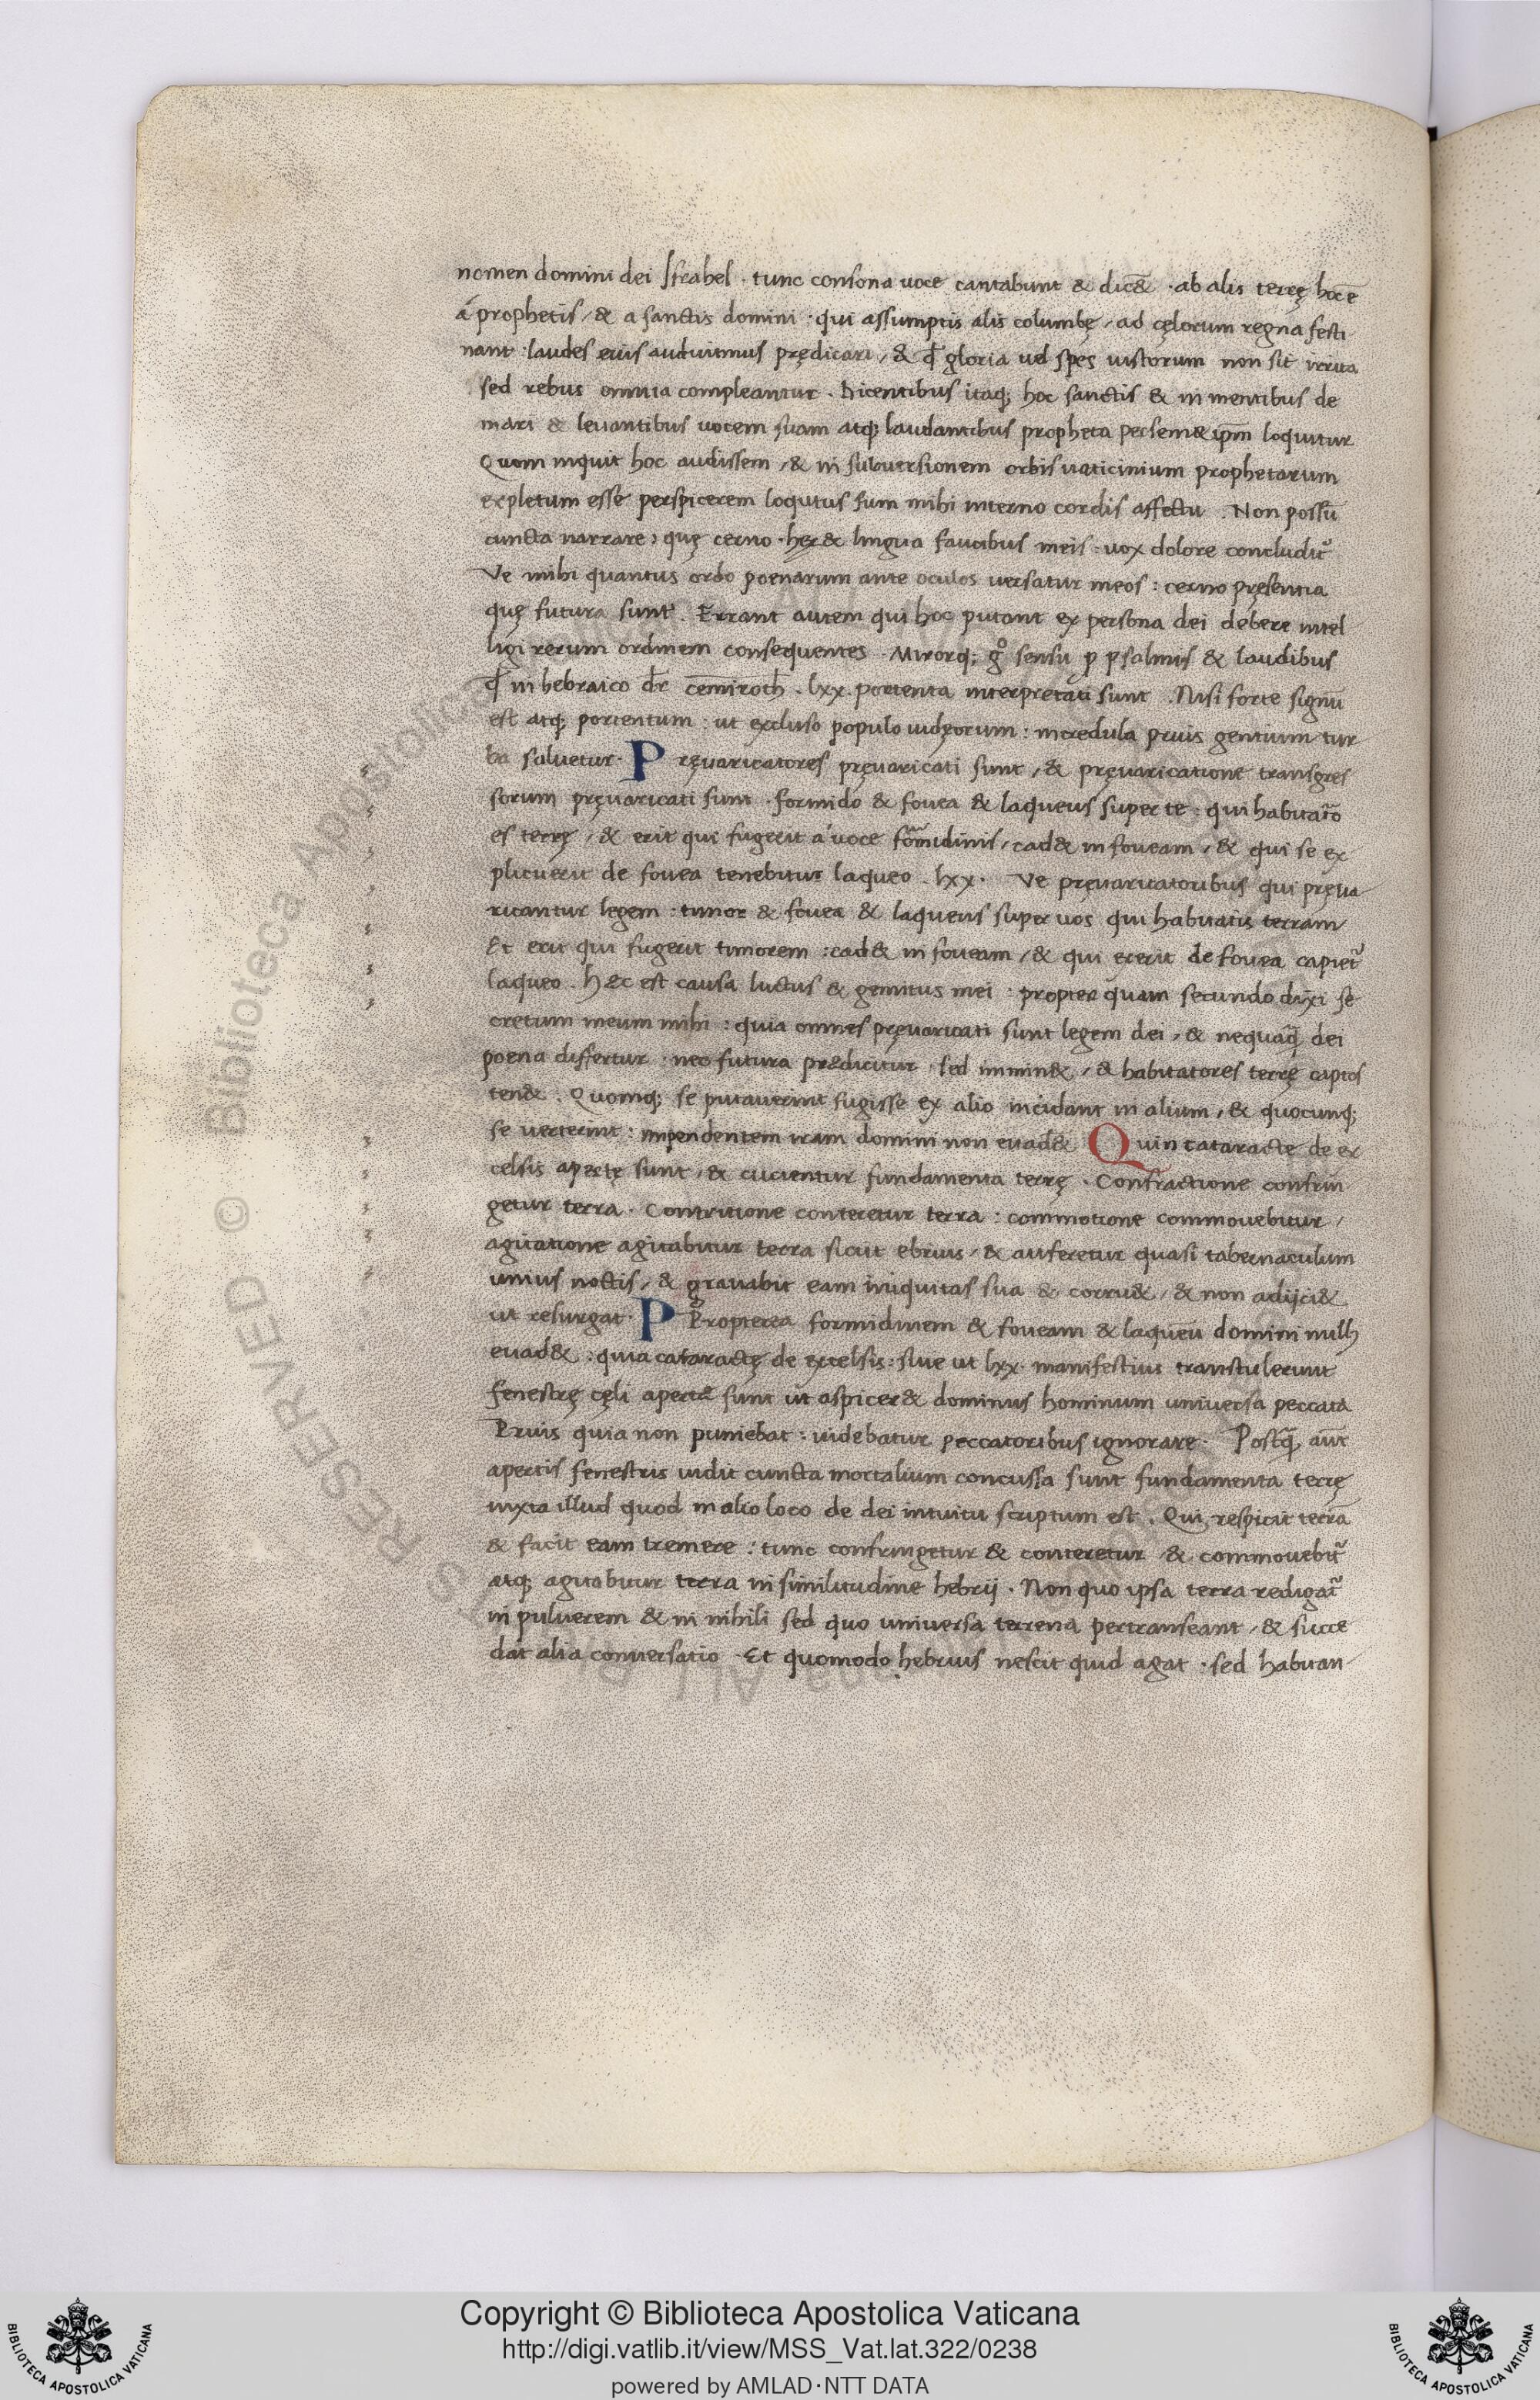 nomen domini dei Israhel · tunc consona uoce cantabunt & dic& · ab alis terrę hoc ē
á prophetis / & a sanctis domini : qui assumptis alis columbę / ad cęlorum regna festi
nant · laudes eius audiuimus prędicari / & qđ gloria uel spes iustorum non sit irrita
sed rebus omnia compleantur . Dicentibus itaq; hoc sanctis & in mentibus de
mari & leuantibus uocem suam atq; laudantibus propheta per sem& ipm̄ loquitur
Quom inquit hoc audissem / & in subuersionem orbis uaticinium prophetarum
expletum esse perspicerem loqutus sum mihi interno cordis affectu . Non possū
cuncta narrare : quę cerno · her& lingua faucibus meis · uox dolore concludit᷑
Ve mihi quantus ordo poenarum ante oculos uersatur meos : cerno pręsentia
quę futura sunt . Errant autem qui hoc putant ex persona dei debere intel
ligi rerum ordinem consequentes . Mirorq; gº sensu p psalmis & laudibus
qđ in hebraico dr̄ cemiroth . lxx . portenta interpretati sunt . Nisi forte signū
est atq; portentum : ut excluso populo iudęorum : incredula prius gentium tur
ba saluetur . Pręuaricatores pręuaricati sunt / & pręuaricatione transgres
sorum pręuaricati sunt · formido & fouea & laqueus super te : qui habitato
es terrę / & erit qui fugerit á uoce formidinis / cad& in foueam / & qui se ex
plicuerit de fouea tenebitur laqueo . lxx . Ve pręuaricatoribus qui pręua
ricantur legem : timor & fouea & laqueus super uos qui habitatis terram
Et erit qui fugerit timorem : cad& in foueam / & qui exierit de fouea capiet᷑
laqueo . Hęc est causa luctus & gemitus mei : propter quam secundo dixi se
cretum meum mihi : quia omnes pręuaricati sunt legem dei / & nequaq̄ dei
poena differtur · nec futura prædicitur · sed immin& / & habitatores terrę captos
ten& . Quomq; se putauerint fugisse ex alio incidant in alium / & quocunq;
se uerterint : impendentem iram domini non euad& Quin cataracte de ex
celsis apertę sunt / & cucientur fundamenta terrę . Confractione confrin
getur terra . Contritione conteretur terra : commotione commouebitur /
agitatione agitabitur terra sicut ebrius / & auferetur quasi tabernaculum
unius noctis / & grauabit eam iniquitas sua & corru& / & non adijci&
ut resurgat . P Propterea formidinem & foueam & laqueū domini null
euad& : quia cataractę de excelsis : siue ut lxx · manifestius transtulerunt
fenestrę cęli apertæ sunt ut aspicer& dominus hominum uniuersa peccata
Prius quia non puniebat : uidebatur peccatoribus ignorare . Postq̄ aut̄
apertis fenestris uidit cuncta mortalium concussa sunt fundamenta terrę
iuxta illud quod in alio loco de dei intuitu scriptum est . Qui respicit terrā
& facit eam tremere : tunc confringetur & conteretur & commouebit᷑
atq; agitabitur terra in similitudine hebrij . Non quo ipsa terra redigat᷑
in puluerem & in nihili sed quo uniuersa terrena pertranseant / & succe
dat alia conuersatio · Et quomodo hebrius nescit quid agat · sed habitan
Copyright © Biblioteca Apostolica Vaticana
http://digi.vatlib.it/view/MSS_Vat.lat.322/0238
powered by AMLAD·NTT DATA
BIBLIOTECA APOSTOLICA VATICANA
BIBLIOTECA APOSTOLICA VATICANA